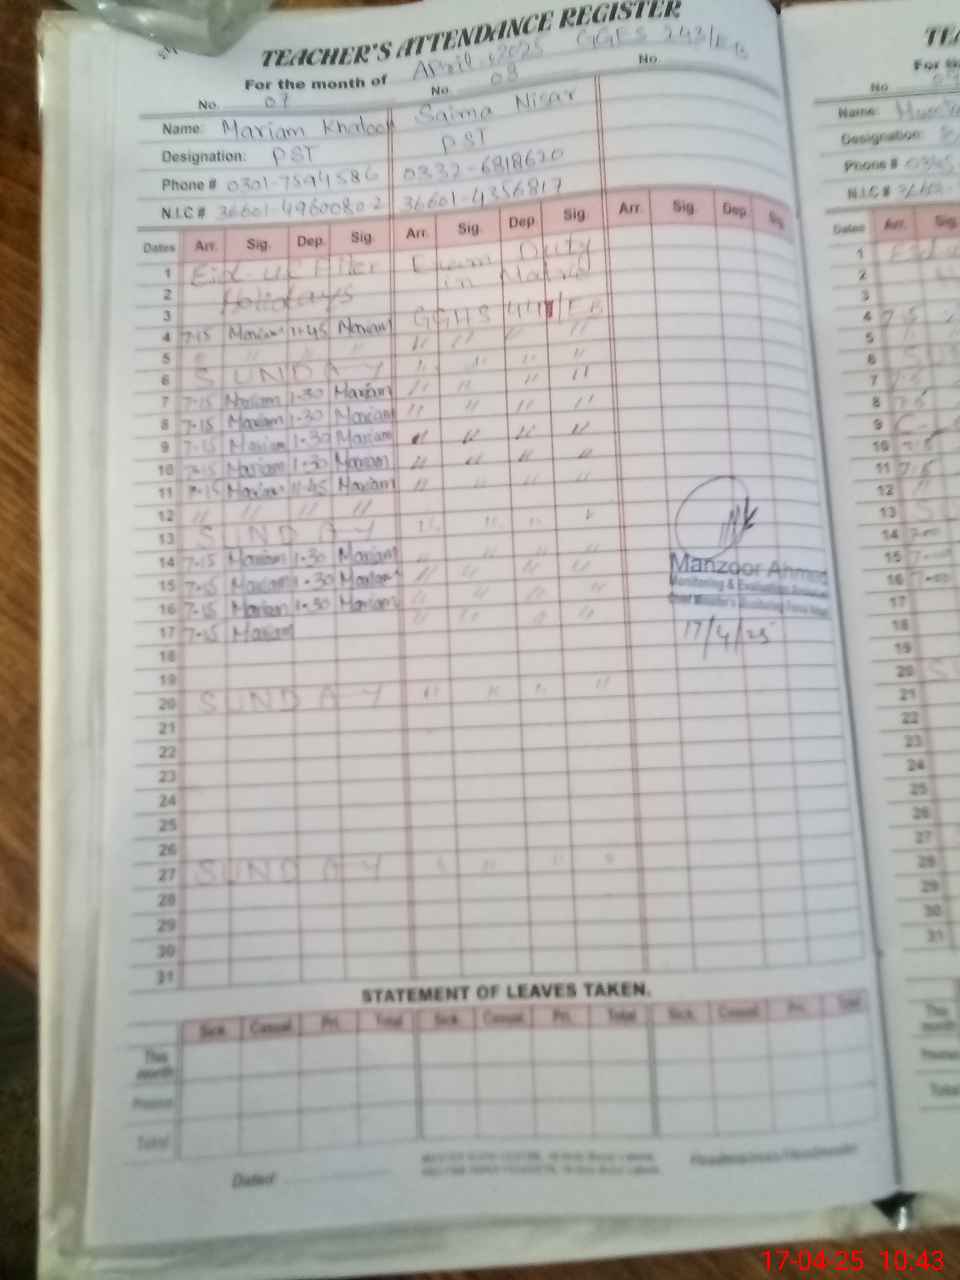 TEACHER'S ATTENDANCE REGISTER
For the month of April, 2025 GGES 243/EB
No. 07 No. 08 No.
Name: Mariam Khalool Saima Nisar
Designation: PST PST
Phone # 0301-7594586 0332-6818620
N.I.C # 36601-4960080-2 36601-4356817
Dates Arr. Sig. Dep. Sig. Arr. Sig. Dep. Sig. Arr. Sig. Dep. Sig.
1 Eid-ul-Fiter Exam Duty
2 Holidays in
3
4 7-15 Mariam 11-45 Mariam GGHS /EB
5 " " " " " " " "
6 SUNDAY " " " "
7 7-15 Mariam 1-30 Mariam " " " "
8 7-15 Mariam 1-30 Mariam " " " "
9 7-15 Mariam 1-30 Mariam " " " "
10 7-15 Mariam 1-30 Mariam " " " "
11 7-15 Mariam 11-45 Mariam " " " "
12 " " " "
13 SUNDAY " " " "
14 7-15 Mariam 1-30 Mariam " " " "
15 7-15 Mariam 1-30 Mariam " " " "
16 7-15 Mariam 1-30 Mariam " " " "
17 7-15 Mariam " " " "
18
19
20 SUNDAY " " " "
21
22
23
24
25
26
27 SUNDAY " " " "
28
29
30
31
Manzoor Ahmed
Monitoring & Evaluation
17/4/25
STATEMENT OF LEAVES TAKEN.
Sick. Casual. Pri. Total Sick. Casual. Pri. Total Sick. Casual. Pri. Total
This month
Total
Dated
Name:
Designation:
Phone #
N.I.C #
Dates Arr. Sig.
1
2
3
4 7-5
5
6
7
8 7-5
9
10 7-5
11 7-5
12
13
14 7-00
15 7-00
16 7-00
17
18
19
20
21
22
23
24
25
26
27
28
29
30
31
This month
Total
17-04-25 10:43